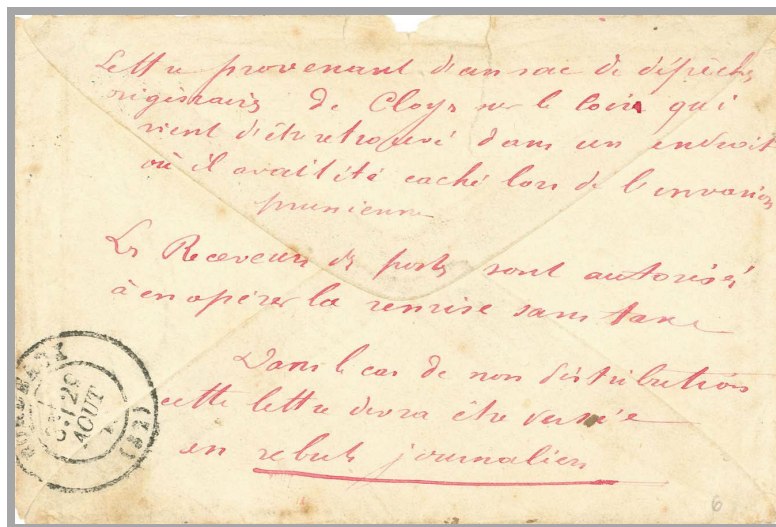 Lettre provenant d'un sac de dépêches
originaires de Cloys sur le Loir qui
vient d'être retrouvé dans un endroit
où il avait été caché lors de l'invasion
prussienne
Les Receveurs des postes sont autorisés
à en opérer la remise sans taxe
Dans le cas de non distribution
cette lettre devra être versée
en rebuts journaliers
BORDEAUX
29
AOUT
(32)
6